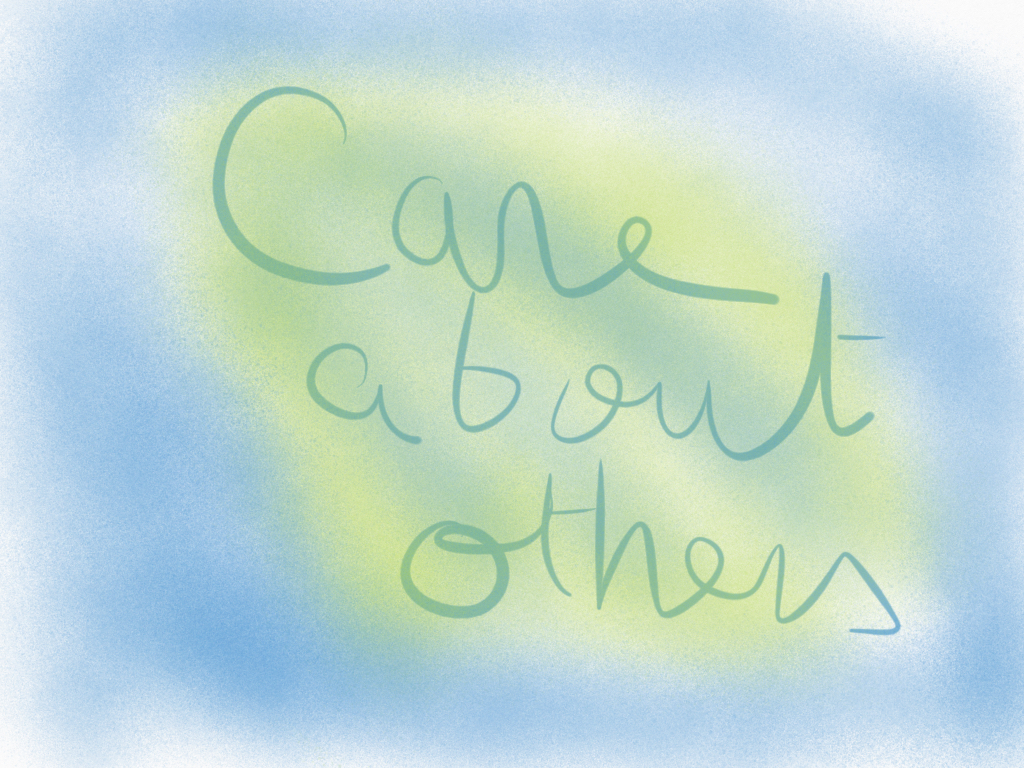 Care
about
others